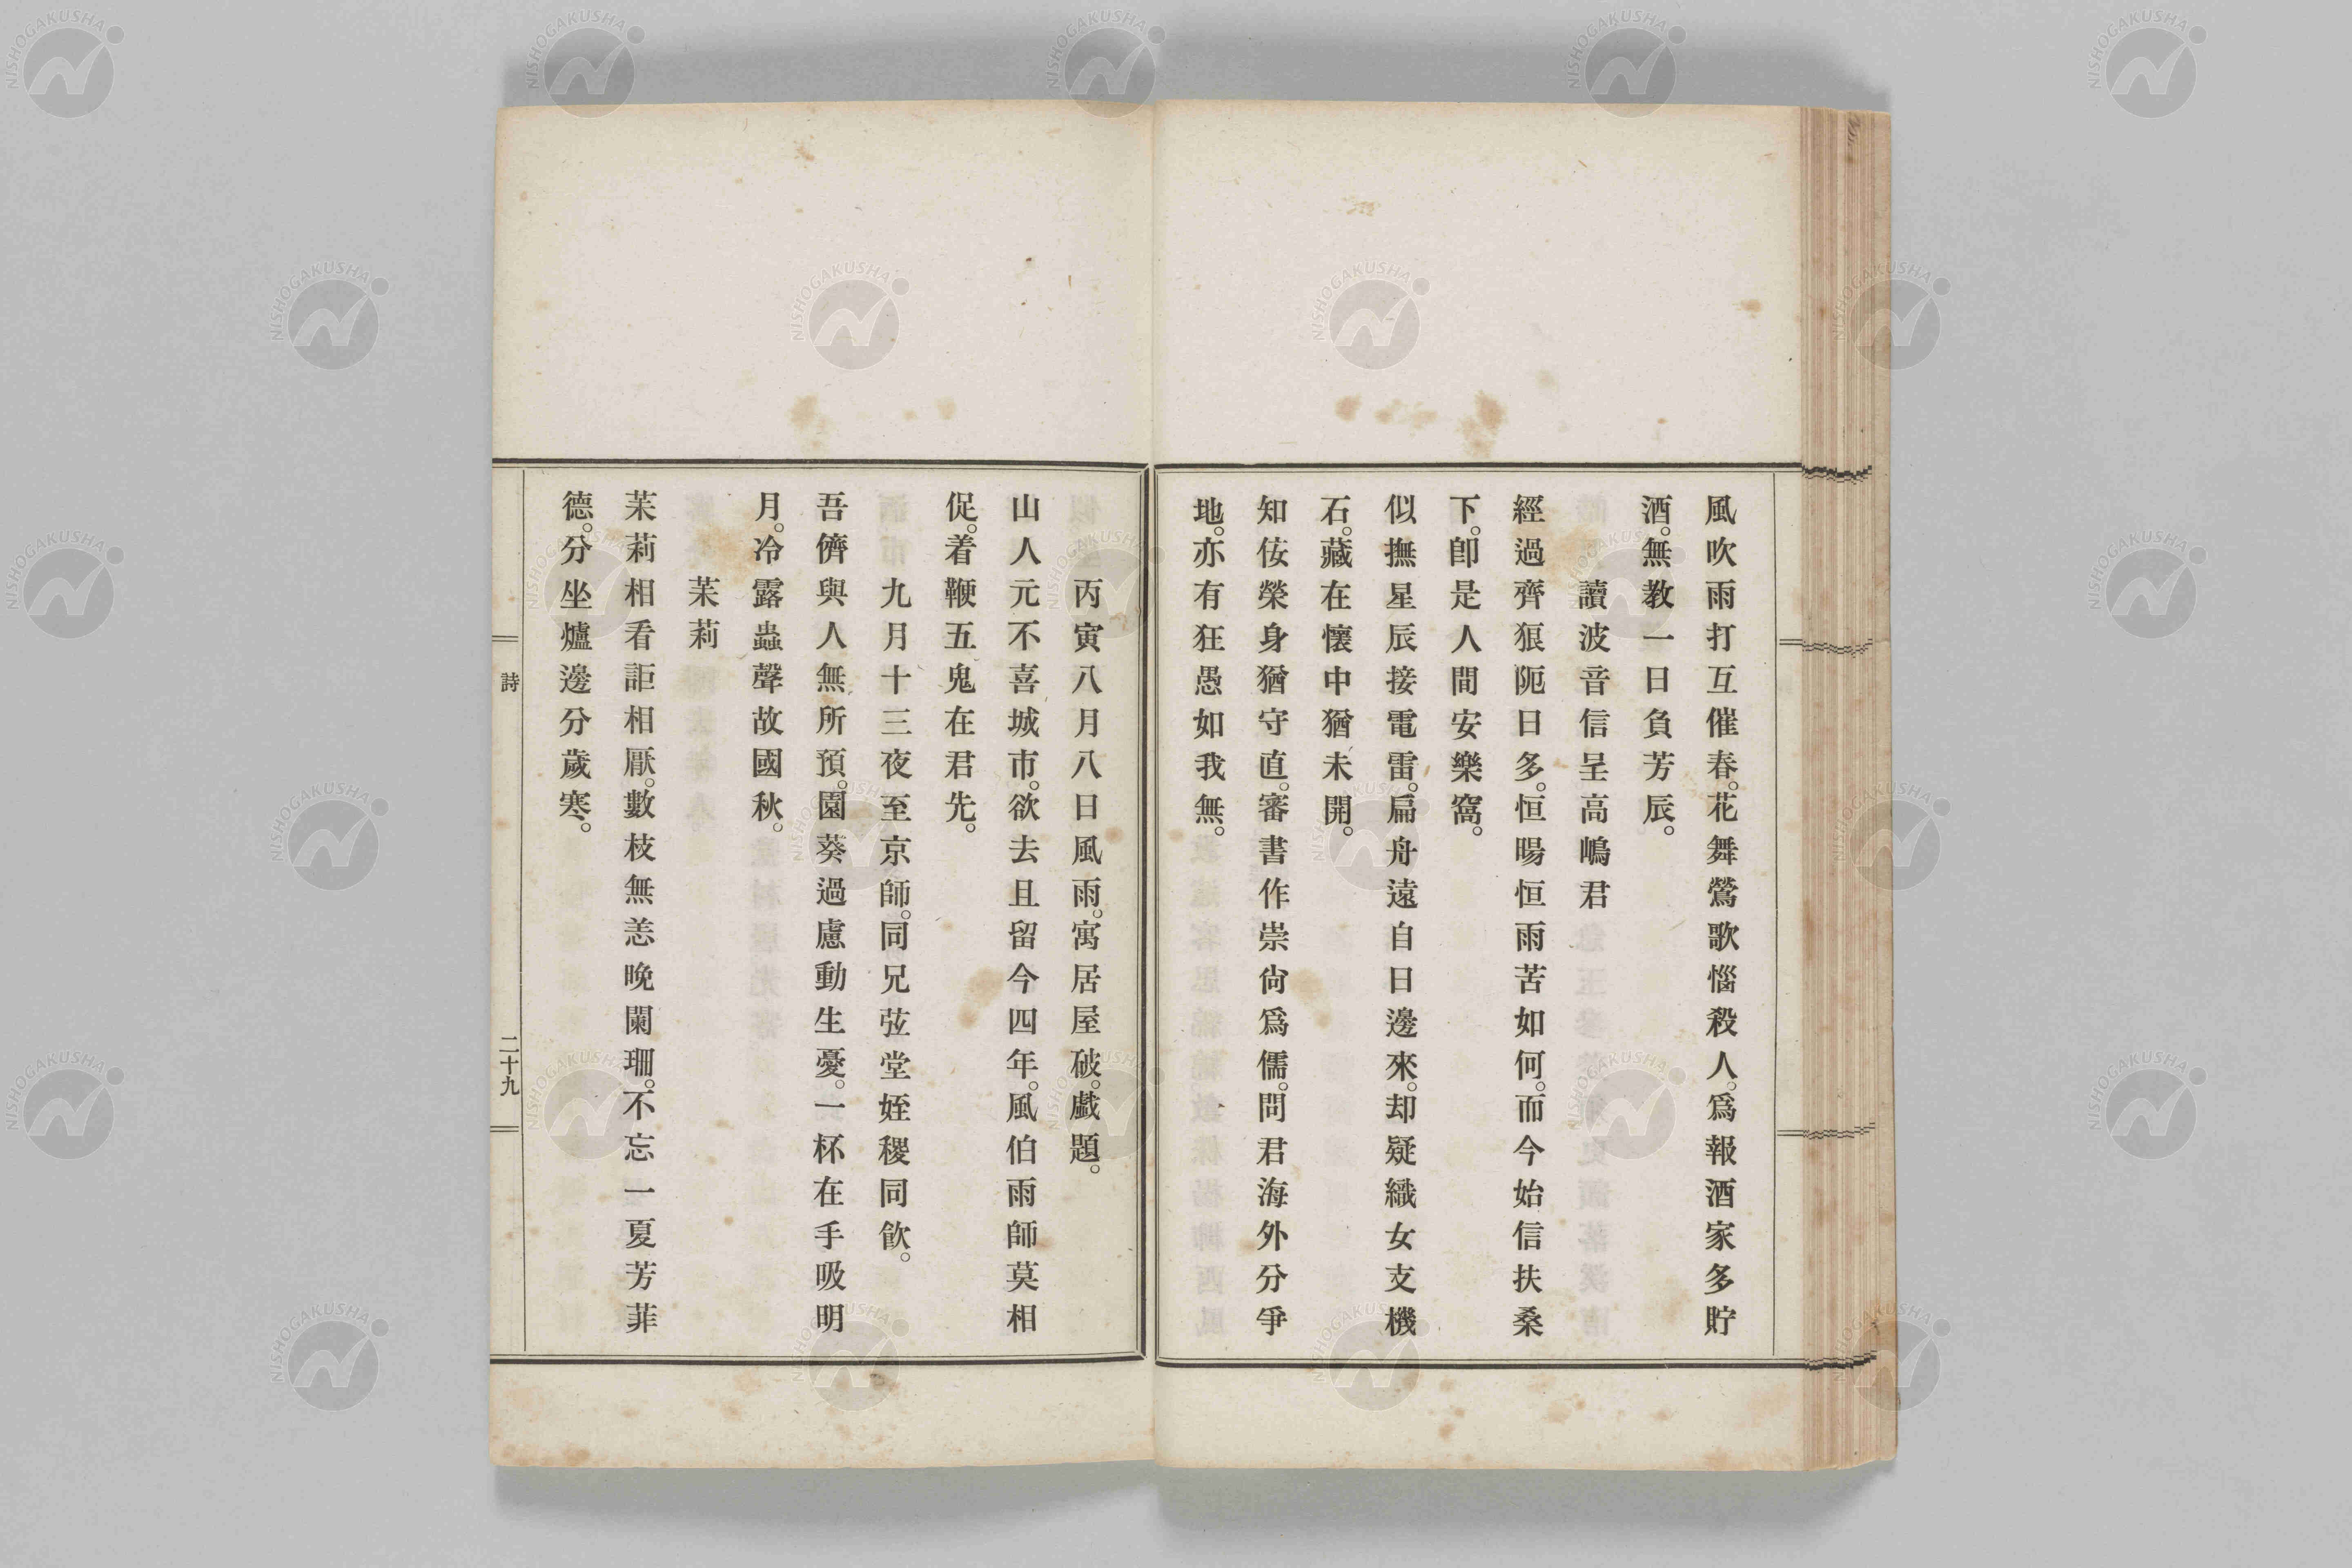 風吹雨打互催春。花舞鶯歌惱殺人。爲報酒家多貯
酒。無教一日負芳辰。
讀波音信呈高嶋君
經過齊狽阨日多。恒暘恒雨苦如何。而今始信扶桑
下。卽是人間安樂窩。
似撫星辰接電雷。扁舟遠自日邊來。却疑織女支機
石。藏在懷中猶未開。
知侫榮身猶守直。審書作崇尙爲儒。問君海外分爭
地。亦有狂愚如我無。
丙寅八月八日風雨。寓居屋破。戯題。
山人元不喜城市。欲去且留今四年。風伯雨師莫相
促。着鞭五鬼在君先。
九月十三夜至京師。同兄弦堂姪稷同飮。
吾儕與人無所預。園葵過慮動生憂。一杯在手吸明
月。冷露蟲聲故國秋。
茉莉
茉莉相看詎相厭。數枝無恙晚闌珊。不忘一夏芳菲
德。分坐爐邊分歲寒。
詩
二十九
NISHOGAKUSHA